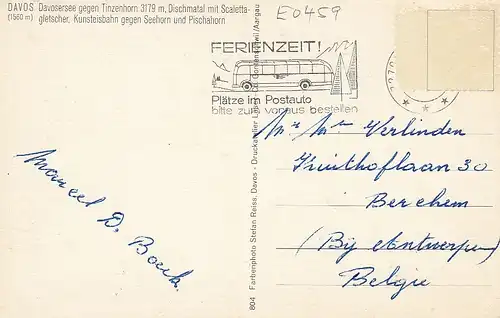 DAVOS. Davosersee gegen Tinzenhorn 3179 m, Dischmatal mit Scaletta-
(1560 m) gletscher, Kunsteisbahn gegen Seehorn und Pischahorn
E0459
FERIENZEIT!
Plätze im Postauto
bitte zum voraus bestellen
Mr & Mme Verlinden
Kruithoflaan 30
Berchem
(Bij Antwerpen)
België
Marcel D. Bock.
804 Farbenphoto Stefan Reiss, Davos - Druckatelier